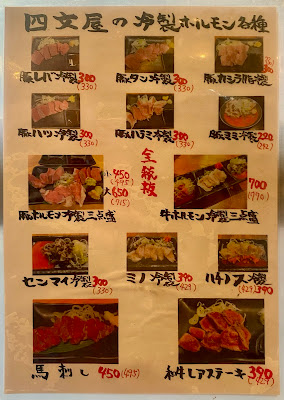 四文屋の冷製ホルモン各種
豚レバ冷製 300 (330)
豚タン冷製 300 (330)
豚ガシラ冷製
豚ハツ冷製 300 (330)
豚ハラミ冷製 300 (330)
豚ミミ冷製
全税抜
小 450 (495)
大 650 (715)
豚ホルモン冷製三点盛
700 (770)
牛ホルモン冷製三点盛
センマイ冷製 300 (330)
ミノ冷製 390 (429)
ハチノス冷製 (429) 390
馬刺し 450 (495)
和牛レアステーキ 390 (429)